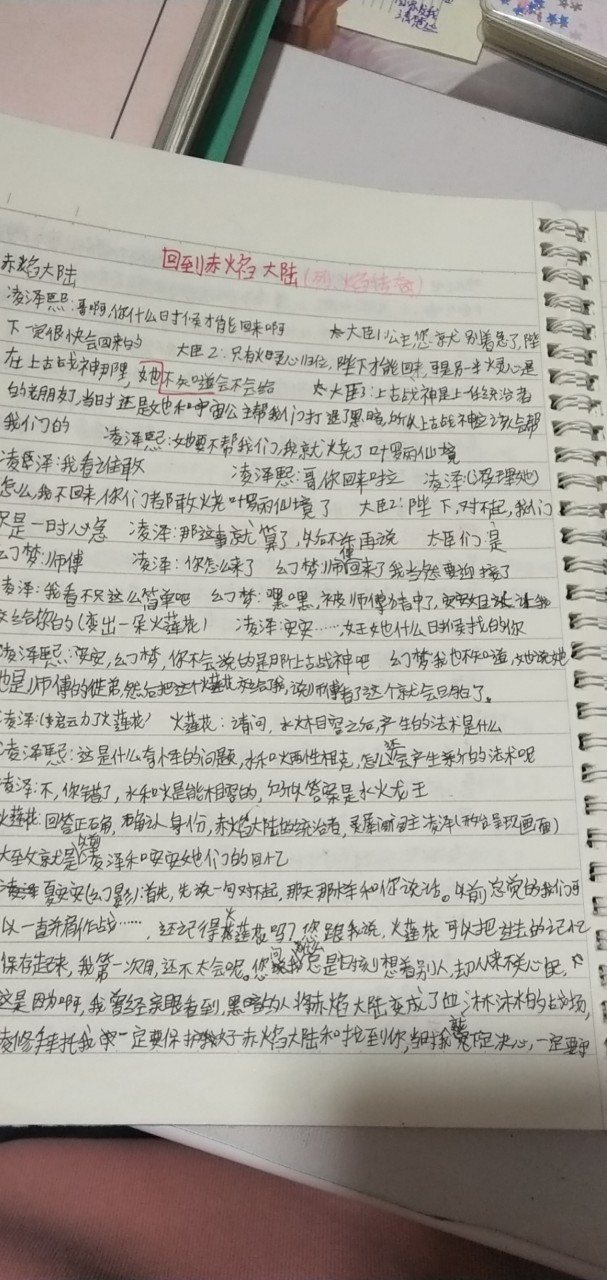 回到赤焰大陆
赤焰大陆
凌泽熙:哥啊,你什么时候才能回来啊 大臣1:公主,您就别着急了,陛
下一定很快会回来的 大臣2:只有火灵心归位,陛下才能回来,可是另一半火灵心是
在上古战神那里,她不知道会不会给 大臣3:上古战神是上任统治者
的老朋友,当时还是她和宇宙公主帮我们打退了黑暗,所以上古战神应该会帮
我们的 凌泽熙:她要不帮我们,我就火烧了叶罗丽仙境
凌泽:我看谁敢 凌泽熙:哥你回来啦 凌泽:(没理她)
怎么,我不回来,你们者敢火烧叶罗丽仙境了 大臣2:陛下,对不起,我们
只是一时心急 凌泽:那这事就算了,以后不许再说 大臣们:是
幻梦:师傅 凌泽:你怎么来了 幻梦:师傅回来了我当然要迎接了
凌泽:我看不只这么简单吧 幻梦:嘿嘿,被师傅猜中了,安安姐让我
交给你的(变出一朵火莲花) 凌泽:安安……,她什么时候找的你
凌泽熙:安安,幻梦,你不会说的是那上古战神吧 幻梦:我也不知道,她说她
也是师傅的徒弟,然后把这个火莲花交给了我,说师傅看了这个就会明白了。
凌泽:(启动了火莲花) 火莲花:请问,水火相容之后,产生的法术是什么
凌泽熙:这是什么奇怪的问题,水和火两性相克,怎么还会产生新的法术呢
凌泽:不,你错了,水和火是能相容的,所以答案是水火龙王
火莲花:回答正确,确认身份,赤焰大陆的统治者,灵犀阁阁主凌泽(开始呈现画面)
大致就是以前凌泽和安安她们的回忆
夏安安(幻影):首先,先说一句对不起,那天那样和你说话。以前总觉的我们可
以一直并肩作战……,还记得火莲花吗?您跟我说,火莲花可以把过去的记忆
保存起来,我第一次用,还不太会呢。您问我为什么总是时刻想着别人,却从来不关心自己,
这是因为啊,我曾经亲眼看到,黑暗的人将赤焰大陆变成了血淋淋的战场,
凌修拜托我一定要保护好赤焰大陆和找到你,当时我就下定决心,一定要